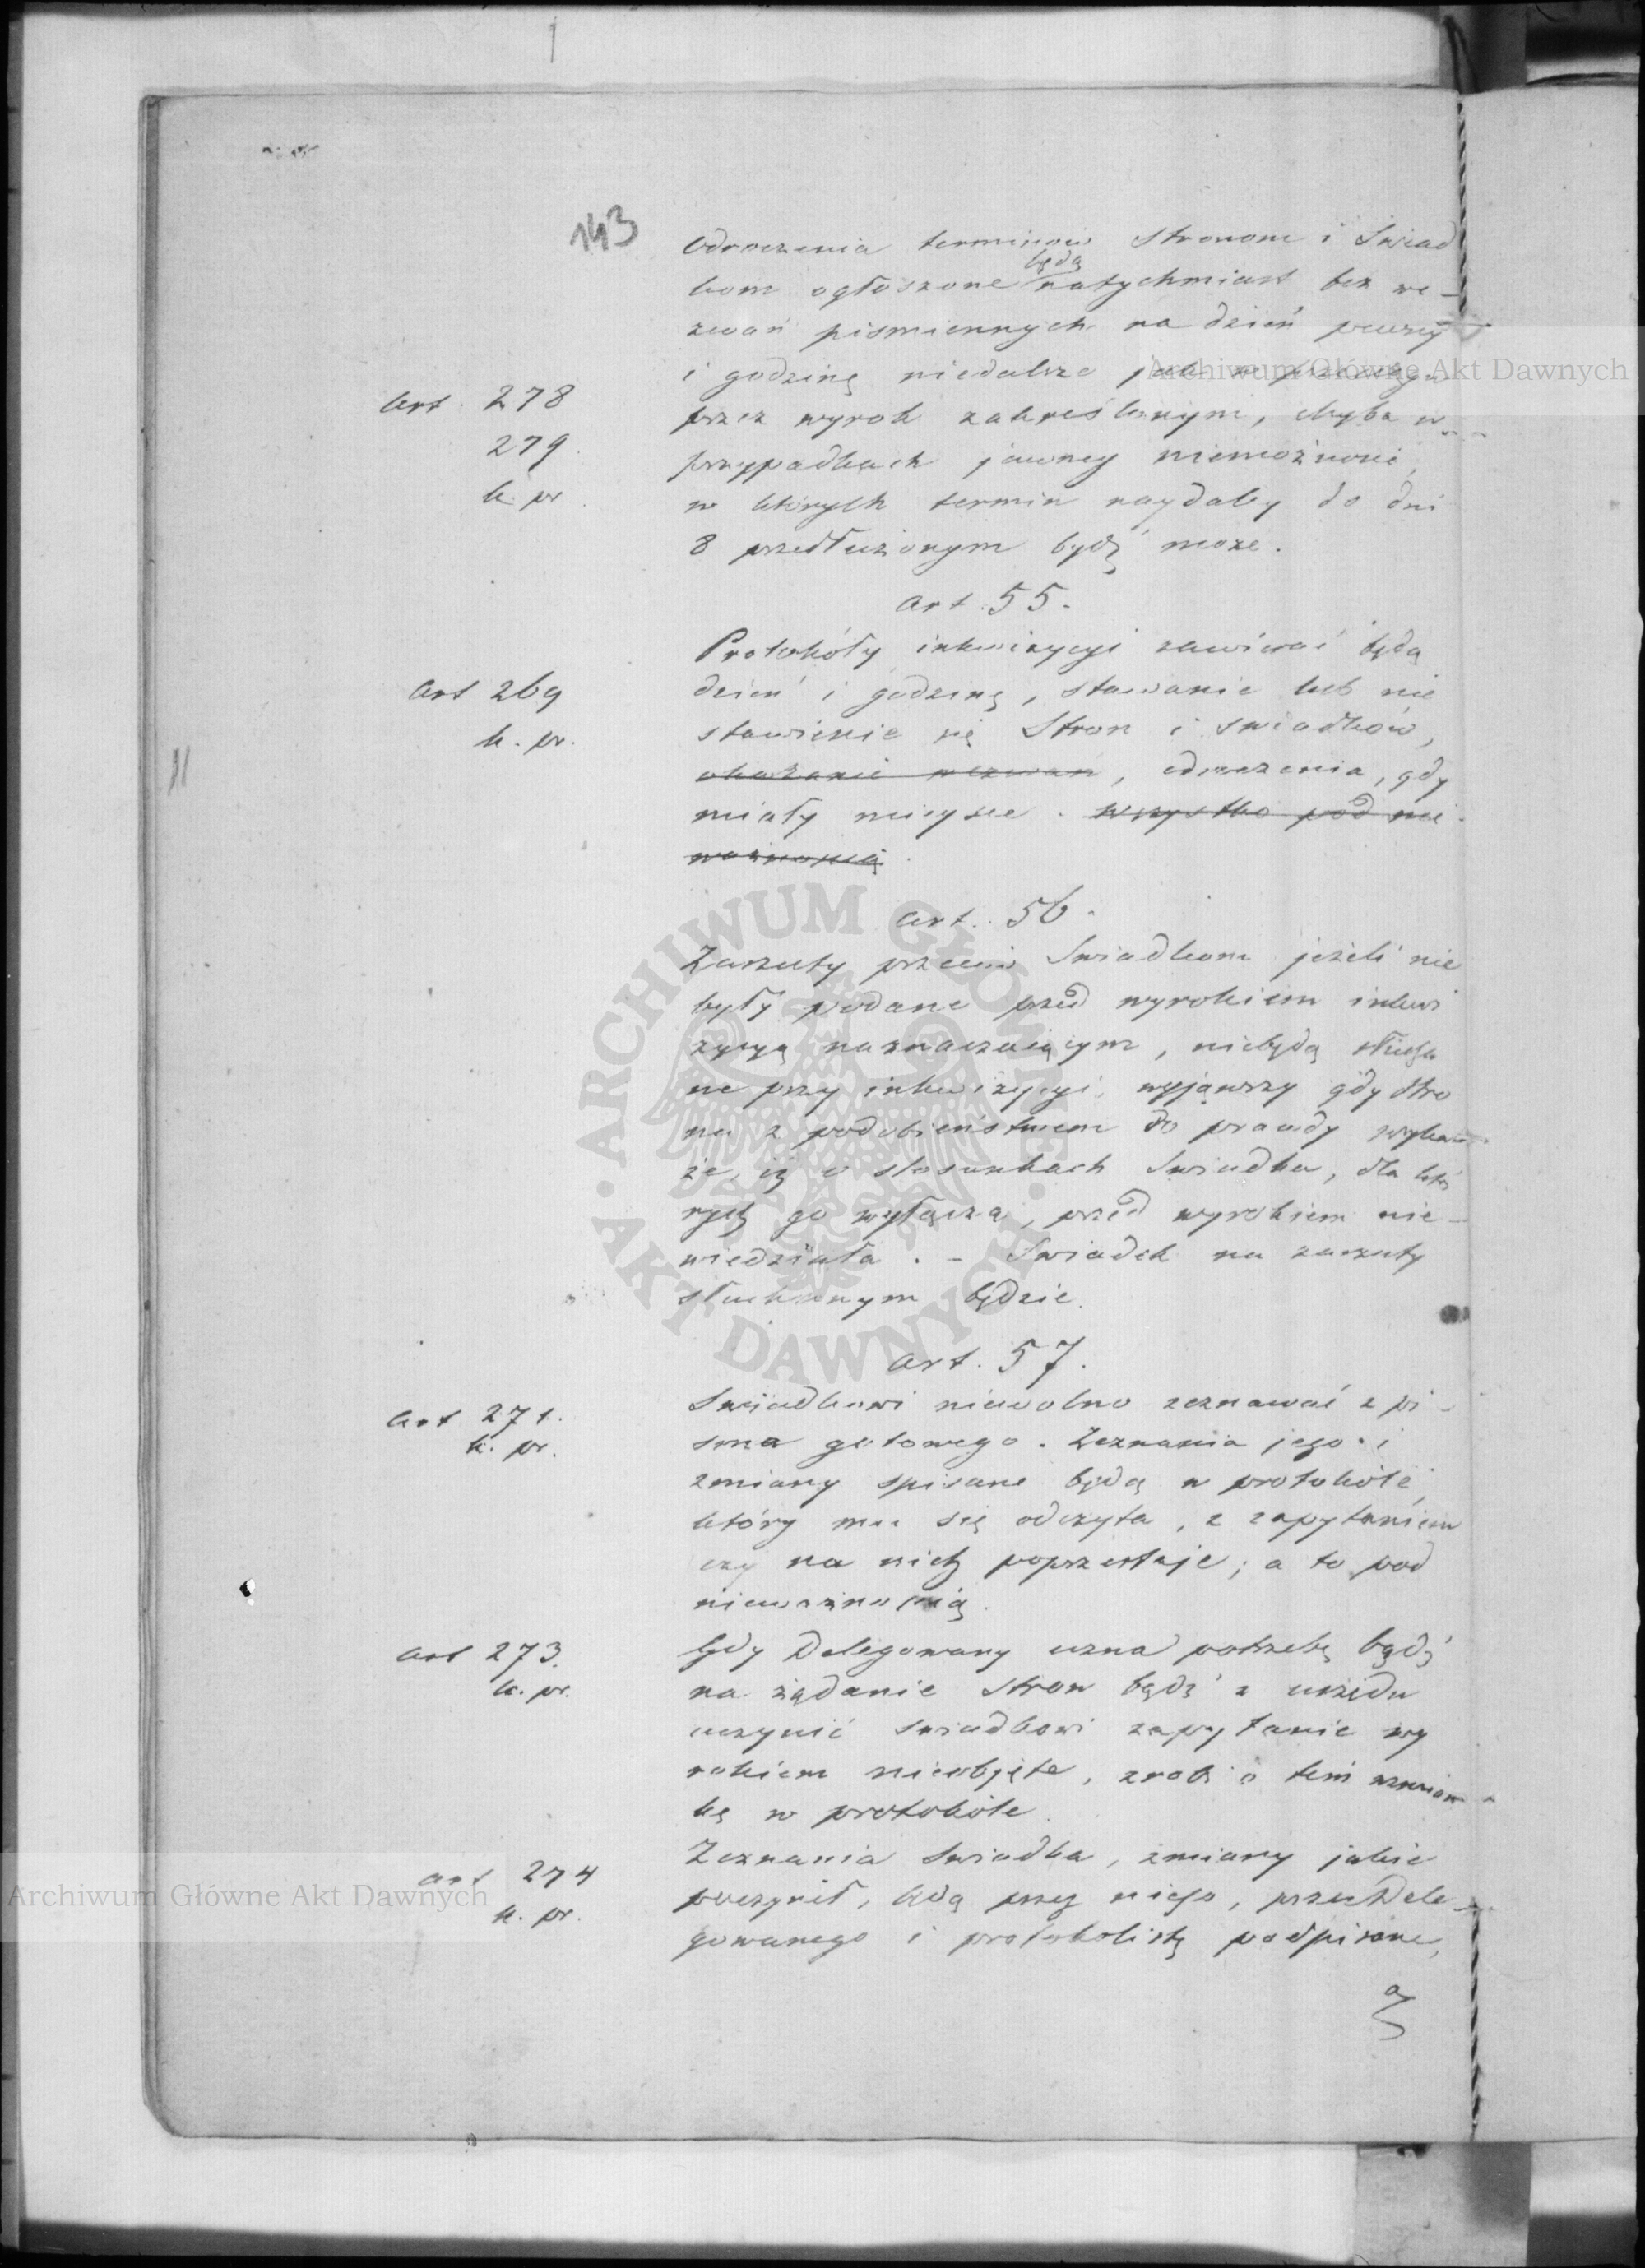 143
Odroczenia terminów Stronom i Swiad
kom ogłoszone będą natychmiast bez we-
zwań pismiennych na dzień pewny
i godzinę niedalsze jak w
Art. 278
przez wyrok zakreślonym, chyba w
279.
przypadkach jawney niemożności,
k. pr.
w których termin naydaley do dni
8 przedłużonym bydź może.
Art. 55.
Protokóły inkwizycyi zawierać będą
Art 269
dzień i godzinę, stawanie lub nie
k. pr.
stawienie się Stron i swiadków,
okazanie wezwań, odroczenia, gdy
miały mieysce. wszystko pod nie-
ważnością.
Art. 56.
Zarzuty przeciw Swiadkom jeżeli nie
były podane przed wyrokiem inkwi
zycyą naznaczaiącym, niebędą słucha
ne przy inkwizycyi, wyjąwszy gdy stro
na z podobieństwem do prawdy wyka-
że, iż o stosunkach Swiadka, dla któ
rych go wyłącza, przed wyrokiem nie-
wiedziała. - Swiadek na zarzuty
słuchanym będzie.
Art. 57.
Swiadkowi niewolno zeznawać z pi-
Art 271.
k. pr.
sma gotowego. Zeznania jego i
zmiany spisane będą w protokóle,
który mu się odczyta, z zapytaniem
czy na nich poprzestaje; a to pod
nieważnością.
Art 273.
Gdy Delegowany uzna potrzebę bądź
k. pr.
na żądanie stron bądź z urzędu
uczynić swiadkowi zapytanie wy
rokiem nieobjęte, zrobi o tem wzmian-
kę w protokóle.
Zeznania swiadka, zmiany jakie
Art 274
poczynił, będą przez niego, przez Dele-
k. pr.
gowanego i protokolistę podpisane,
Archiwum Główne Akt Dawnych
Archiwum Główne Akt Dawnych
ARCHIWUM GŁÓWNE
AKT DAWNYCH